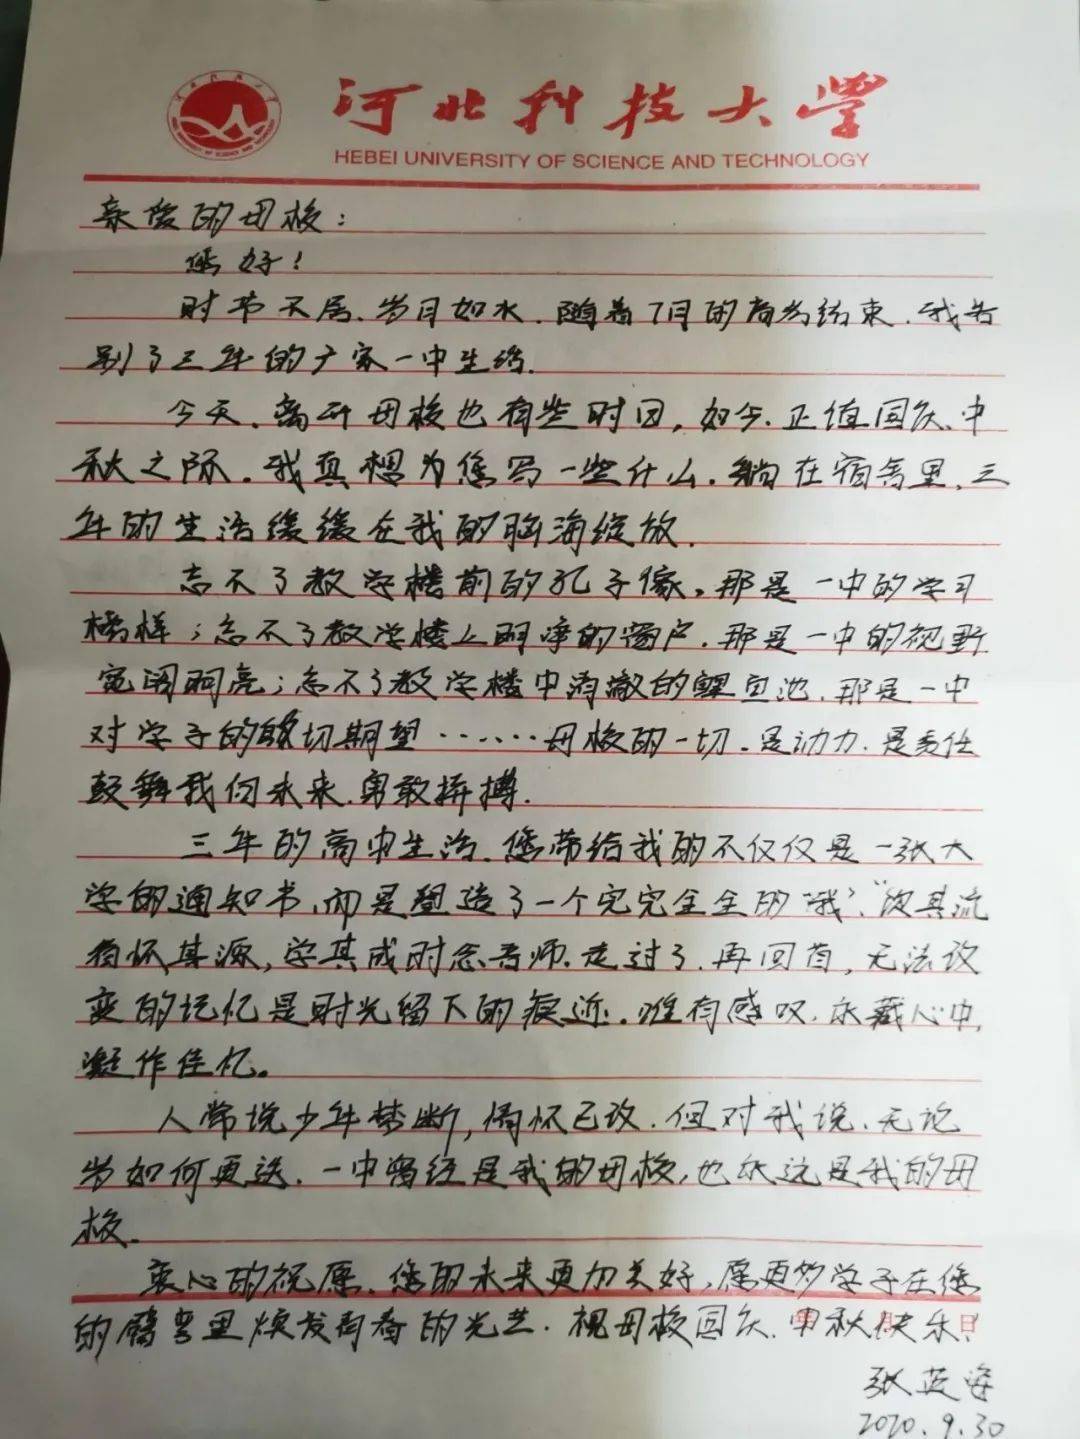 河北科技大学
HEBEI UNIVERSITY OF SCIENCE AND TECHNOLOGY
亲爱的母校：
您好！
时节不居、岁月如水、随着7月的高考结束、我告
别了三年的广宗一中生活.
今天、离开母校也有些时日，如今、正值国庆、中
秋之际。我真想为您写一些什么.躺在宿舍里、三
年的生活缓缓在我的脑海绽放.
忘不了教学楼前的孔子像。那是一中的学习
榜样；忘不了教学楼上明净的窗户、那是一中的视野
宽阔明亮；忘不了教学楼中清澈的鲤鱼池、那是一中
对学子的殷切期望……母校的一切、是动力、是责任
鼓舞我向未来勇敢拼搏.
三年的高中生活、您带给我的不仅仅是一张大
学的通知书、而是塑造了一个完完全全的“我”、“饮其流
者怀其源，学其成时念吾师.走过了、再回首，无法改
变的记忆是时光留下的痕迹。唯有感叹、永藏心中，
凝作佳忆。
人常说少年梦断，情怀已改、但对我说、无论
岁如何更迭、一中曾经是我的母校，也永远是我的母
校.
衷心的祝愿、您的未来更加美好，愿更多学子在您
的臂弯里焕发青春的光芒.祝母校国庆、中秋快乐！
年 月 日
张蓝
2020.9.30